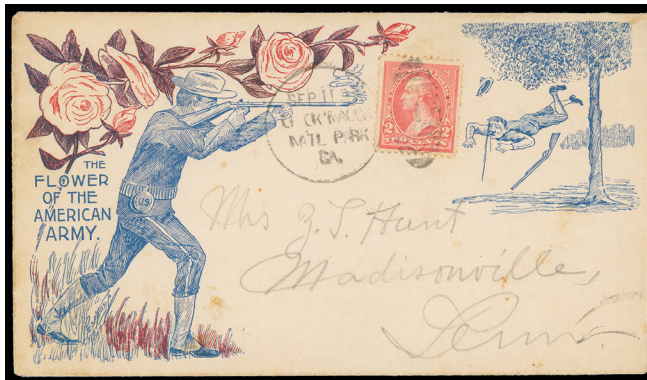 THE
FLOWER
OF THE
AMERICAN
ARMY.
US
SEP 11
CHICK'MAUGA
NAT'L PARK
GA.
2 2
TWO CENTS
Mrs Z. T. Hunt
Madisonville,
Tenn.